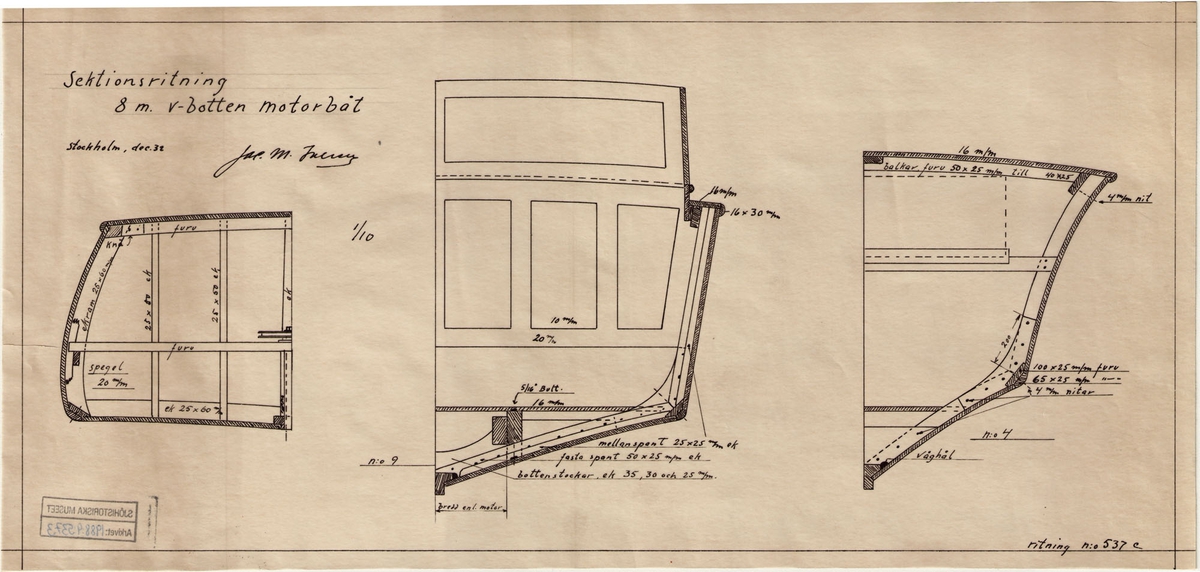 Sektionsritning
8 m. v-botten motorbåt
Stockholm, dec. 32
Jac. M. Iversen
1/10
furu
Knä
ekram 25x60 m/m
25 x 80 ek
25 x 60 ek
ek
furu
spegel
20 m/m
ek 25x60 m/m
16 m/m
16 x 30 m/m
10 m/m
20 m/m
5/16" Bolt.
16 m/m
mellanspant 25x25 m/m ek
n:o 9
fasta spant 50 x 25 m/m ek
bottenstockar, ek 35, 30 och 25 m/m.
bredd enl. motor
16 m/m
balkar furu 50 x 25 m/m till 40x25
4 m/m nit
200
100 x 25 m/m furu
65 x 25 m/m —"—
4 m/m nitar
n:o 4
våghål
SJÖHISTORISKA MUSEET
Arkivet: 1988A5373
ritning n:o 537 c